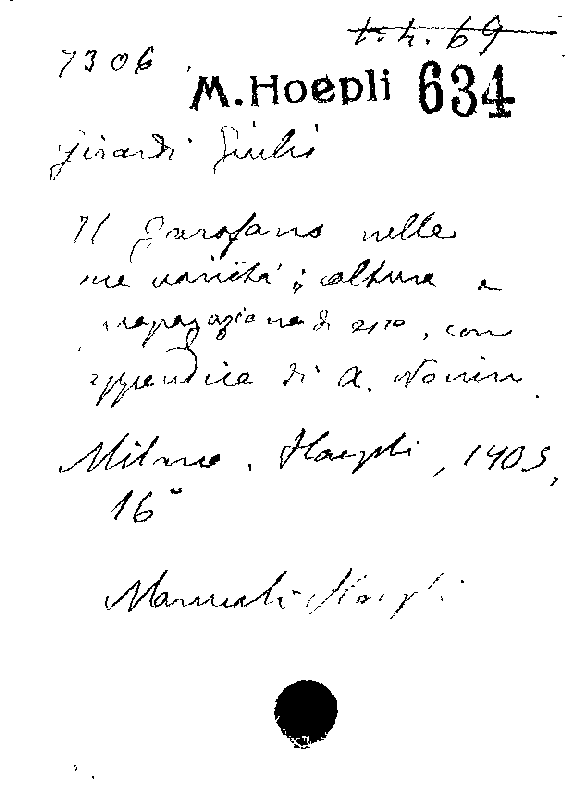 t.h. 69
7306
M. Hoepli 634
Girardi Giulio
Il Garofano nelle
sue varietà; coltura e
propagazione di esso, con
appendice di A. Nonin.
Milano, Hoepli, 1905,
16°
Manuali Hoepli